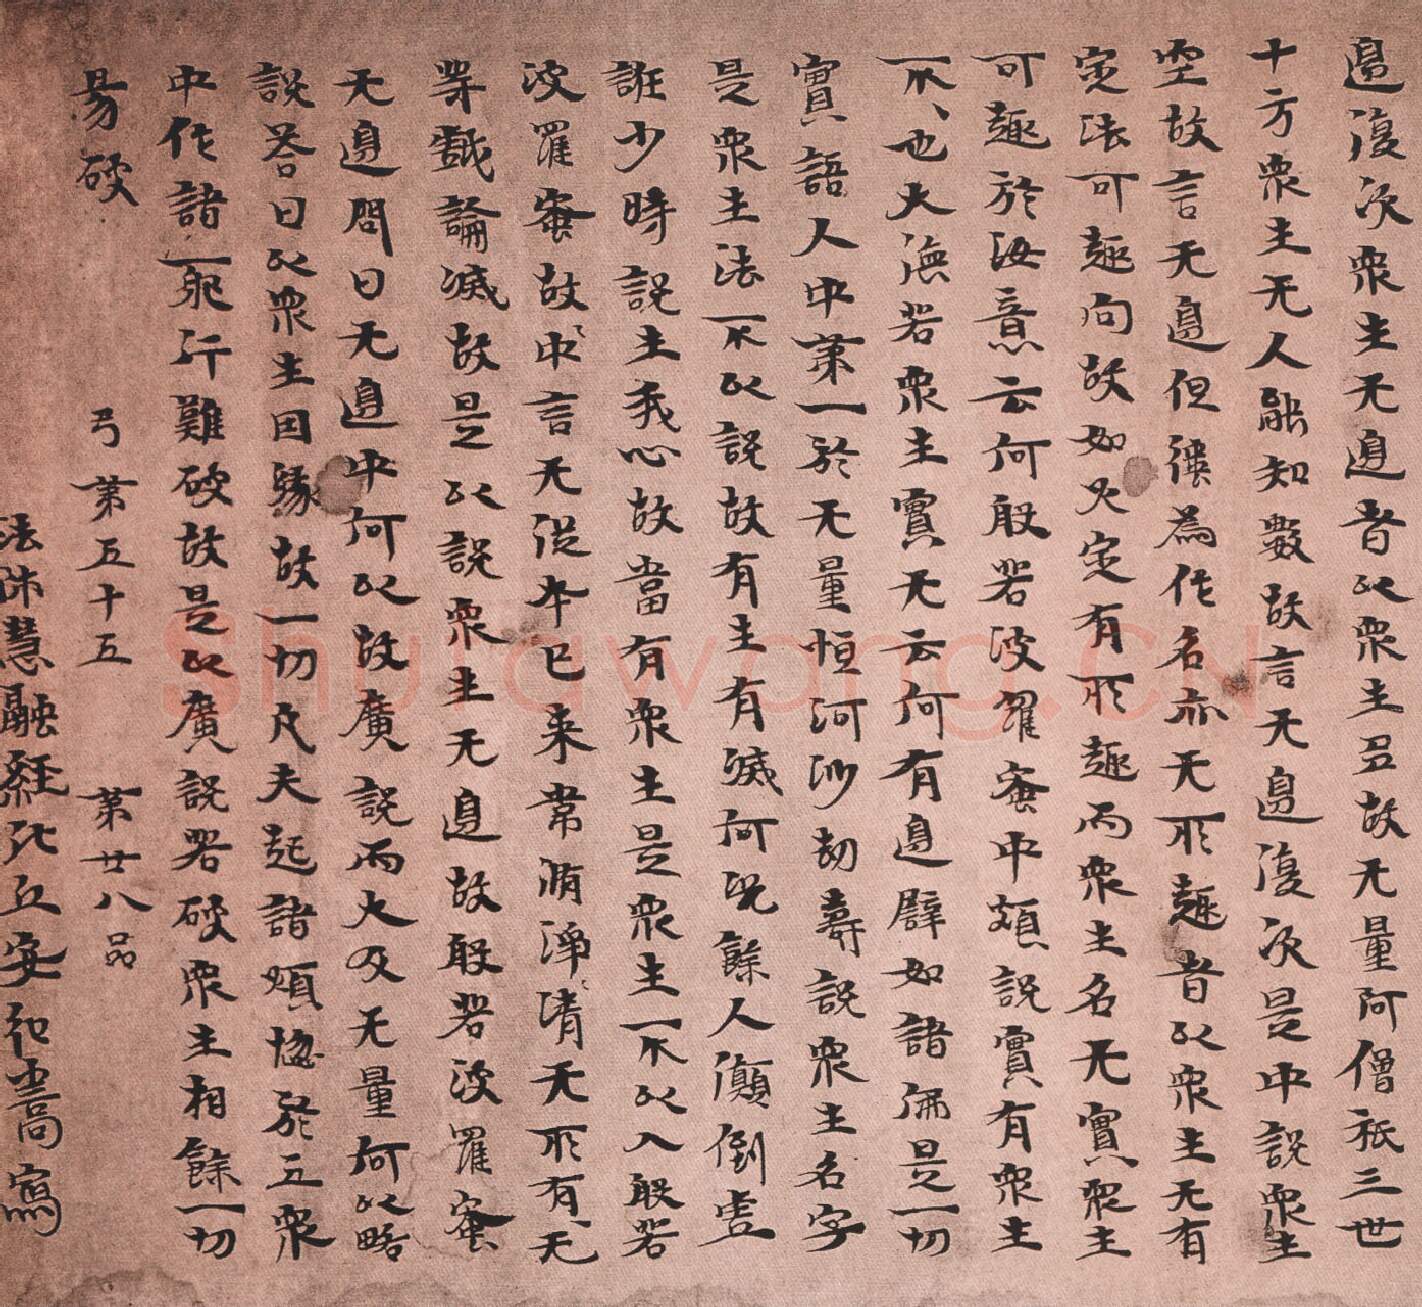 邊復次衆生无邊者以衆生多故无量阿僧祇三世
十方衆生无人能知數故言无邊復次是中說衆生
空故言无邊但彊為作名亦无所趣者以衆生无有
定法可趣向故如火定有所趣而衆生名无實衆生
可趣於汝意云何般若波羅蜜中頗說實有衆生
不不也大德若衆生實无云何有邊辟如諸佛是一切
實語人中第一於无量恒河沙劫壽說衆生名字
是衆生法不以說故有生有滅何況餘人顛倒虛
誑少時說生我心故當有衆生是衆生不以入般若
波羅蜜故中言无從本已来常清淨清无所有无
等戲論滅故是以說衆生无邊故般若波羅蜜
无邊問曰无邊中何以故廣說而大及无量何以略
說答曰以衆生因緣故一切凡夫起諸煩惱於五衆
中作諸耶行難破故是以廣說若破衆生相餘一切
易破
弓第五十五 第廿八品
法師慧融經比丘安弘嵩寫
Shufawang.CN